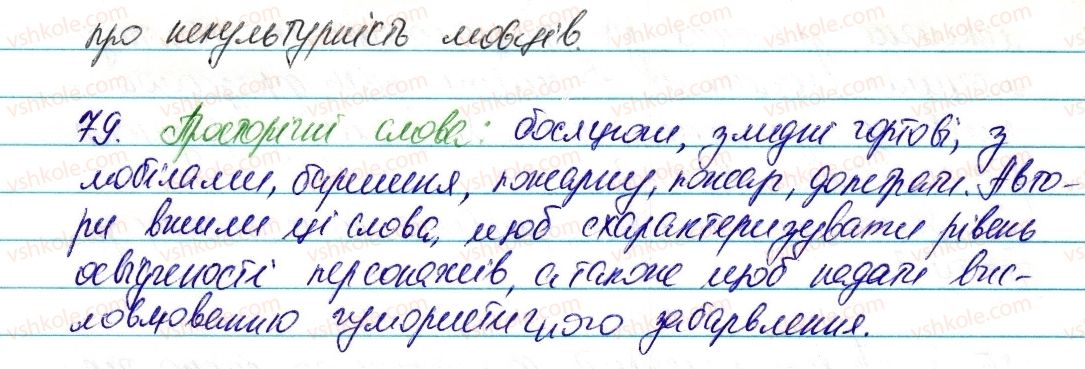 про некультурність мовців.
79. Просторічні слова: босяцюги, злидні чортові, з
мобілами, баришня, пожарну, пожар, допетрати. Авто-
ри вжили ці слова, щоб схарактеризувати рівень
освіченості персонажів, а також щоб надати вис-
ловлюванню гумористичного забарвлення.